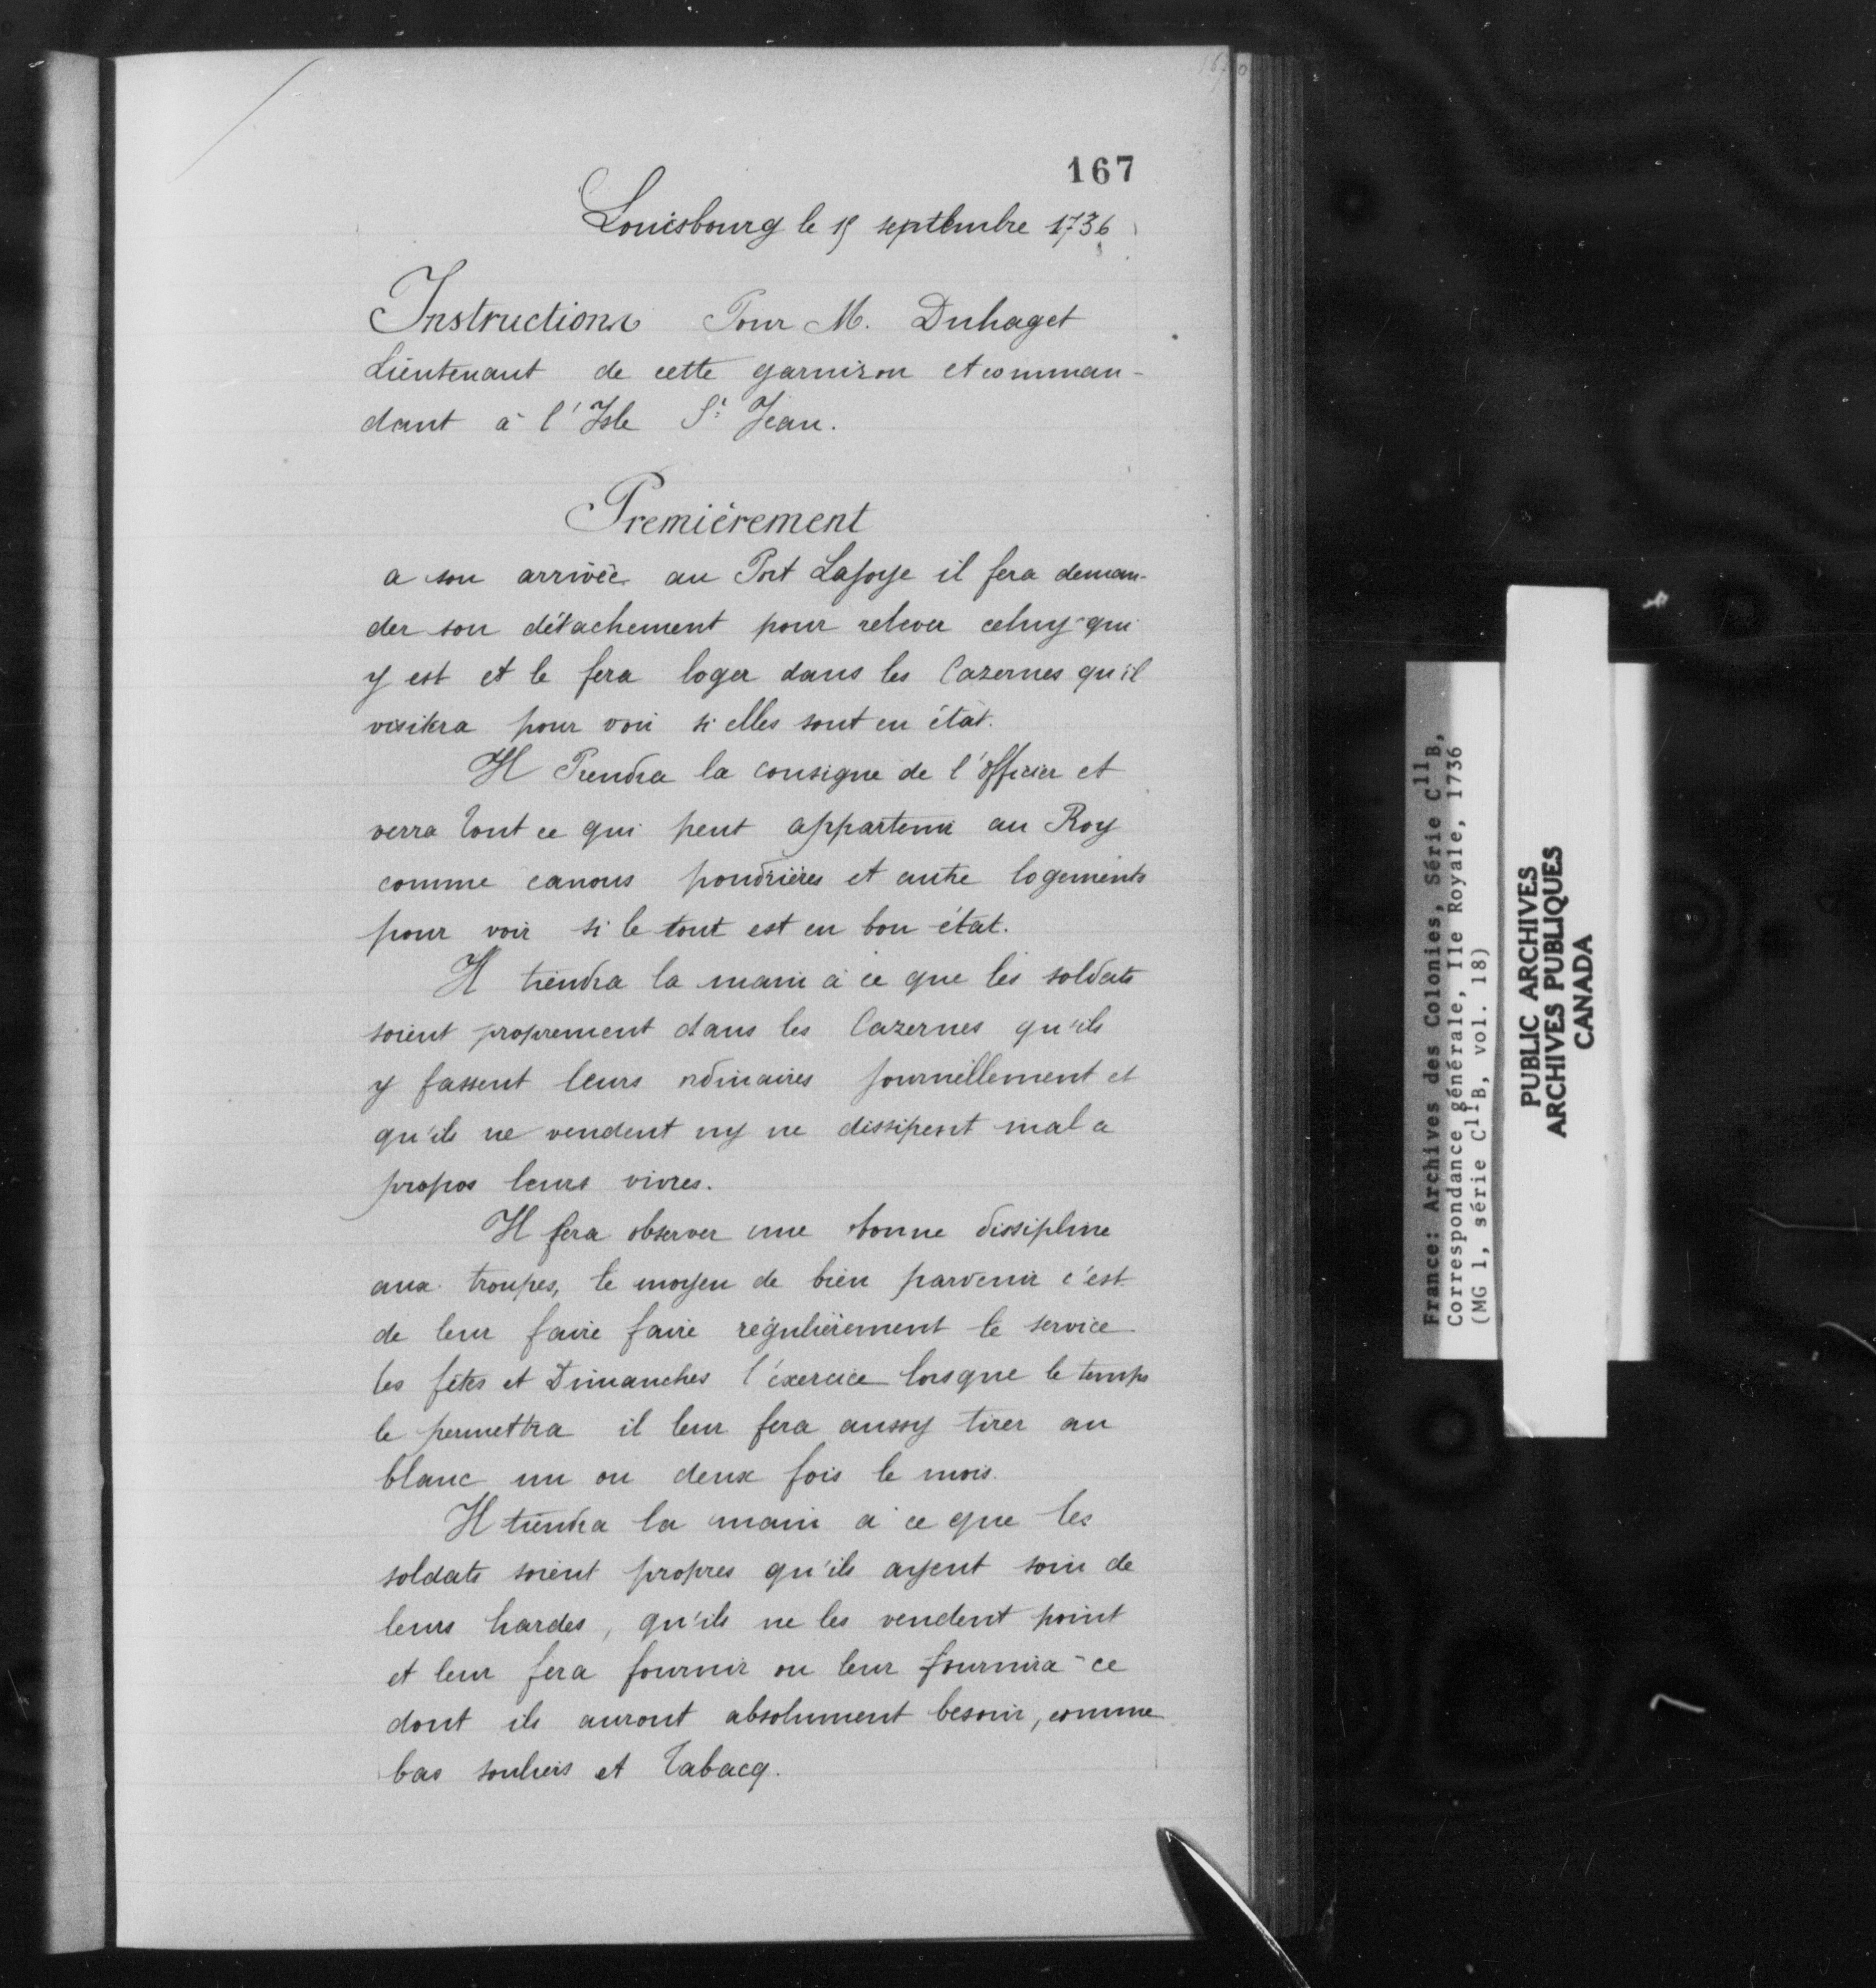 167
Louisbourg le 15 septembre 1736
Instructions Pour M. Duhaget
Lieutenant de cette garnison et comman-
dant à l'Isle St Jean.
Premièrement
a son arrivée au Port Lajoye il fera deman-
der son détachement pour relever celuy qui
y est et le fera loger dans les Cazernes qu'il
visitera pour voir si elles sont en état.
Il Prendra la consigne de l'officier et
verra tout ce qui peut appartenir au Roy
comme canons poudrières et autre logements
pour voir si le tout est en bon état.
Il tiendra la main à ce que les soldats
soient proprement dans les Cazernes qu'ils
y fassent leurs ordinaires journellement et
qu'ils ne vendent ny ne dissipent mal a
propos leurs vivres.
Il fera observer une bonne dissipline
aux troupes, le moyen de bien parvenir c'est
de leur faire faire régulièrement le service
les fêtes et Dimanches l'éxercice lorsque le temps
le permettra il leur fera aussy tirer au
blanc un ou deux fois le mois.
Il tiendra la main à ce que les
soldats soient propres qu'ils ayent soin de
leurs hardes, qu'ils ne les vendent point
et leur fera fournir ou leur fournira ce
dont ils auront absolument besoin, comme
bas souliers et Tabacq.
France: Archives des Colonies, Série C11B,
Correspondance générale, Ile Royale, 1736
(MG 1, série C11B, vol. 18)
PUBLIC ARCHIVES
ARCHIVES PUBLIQUES
CANADA